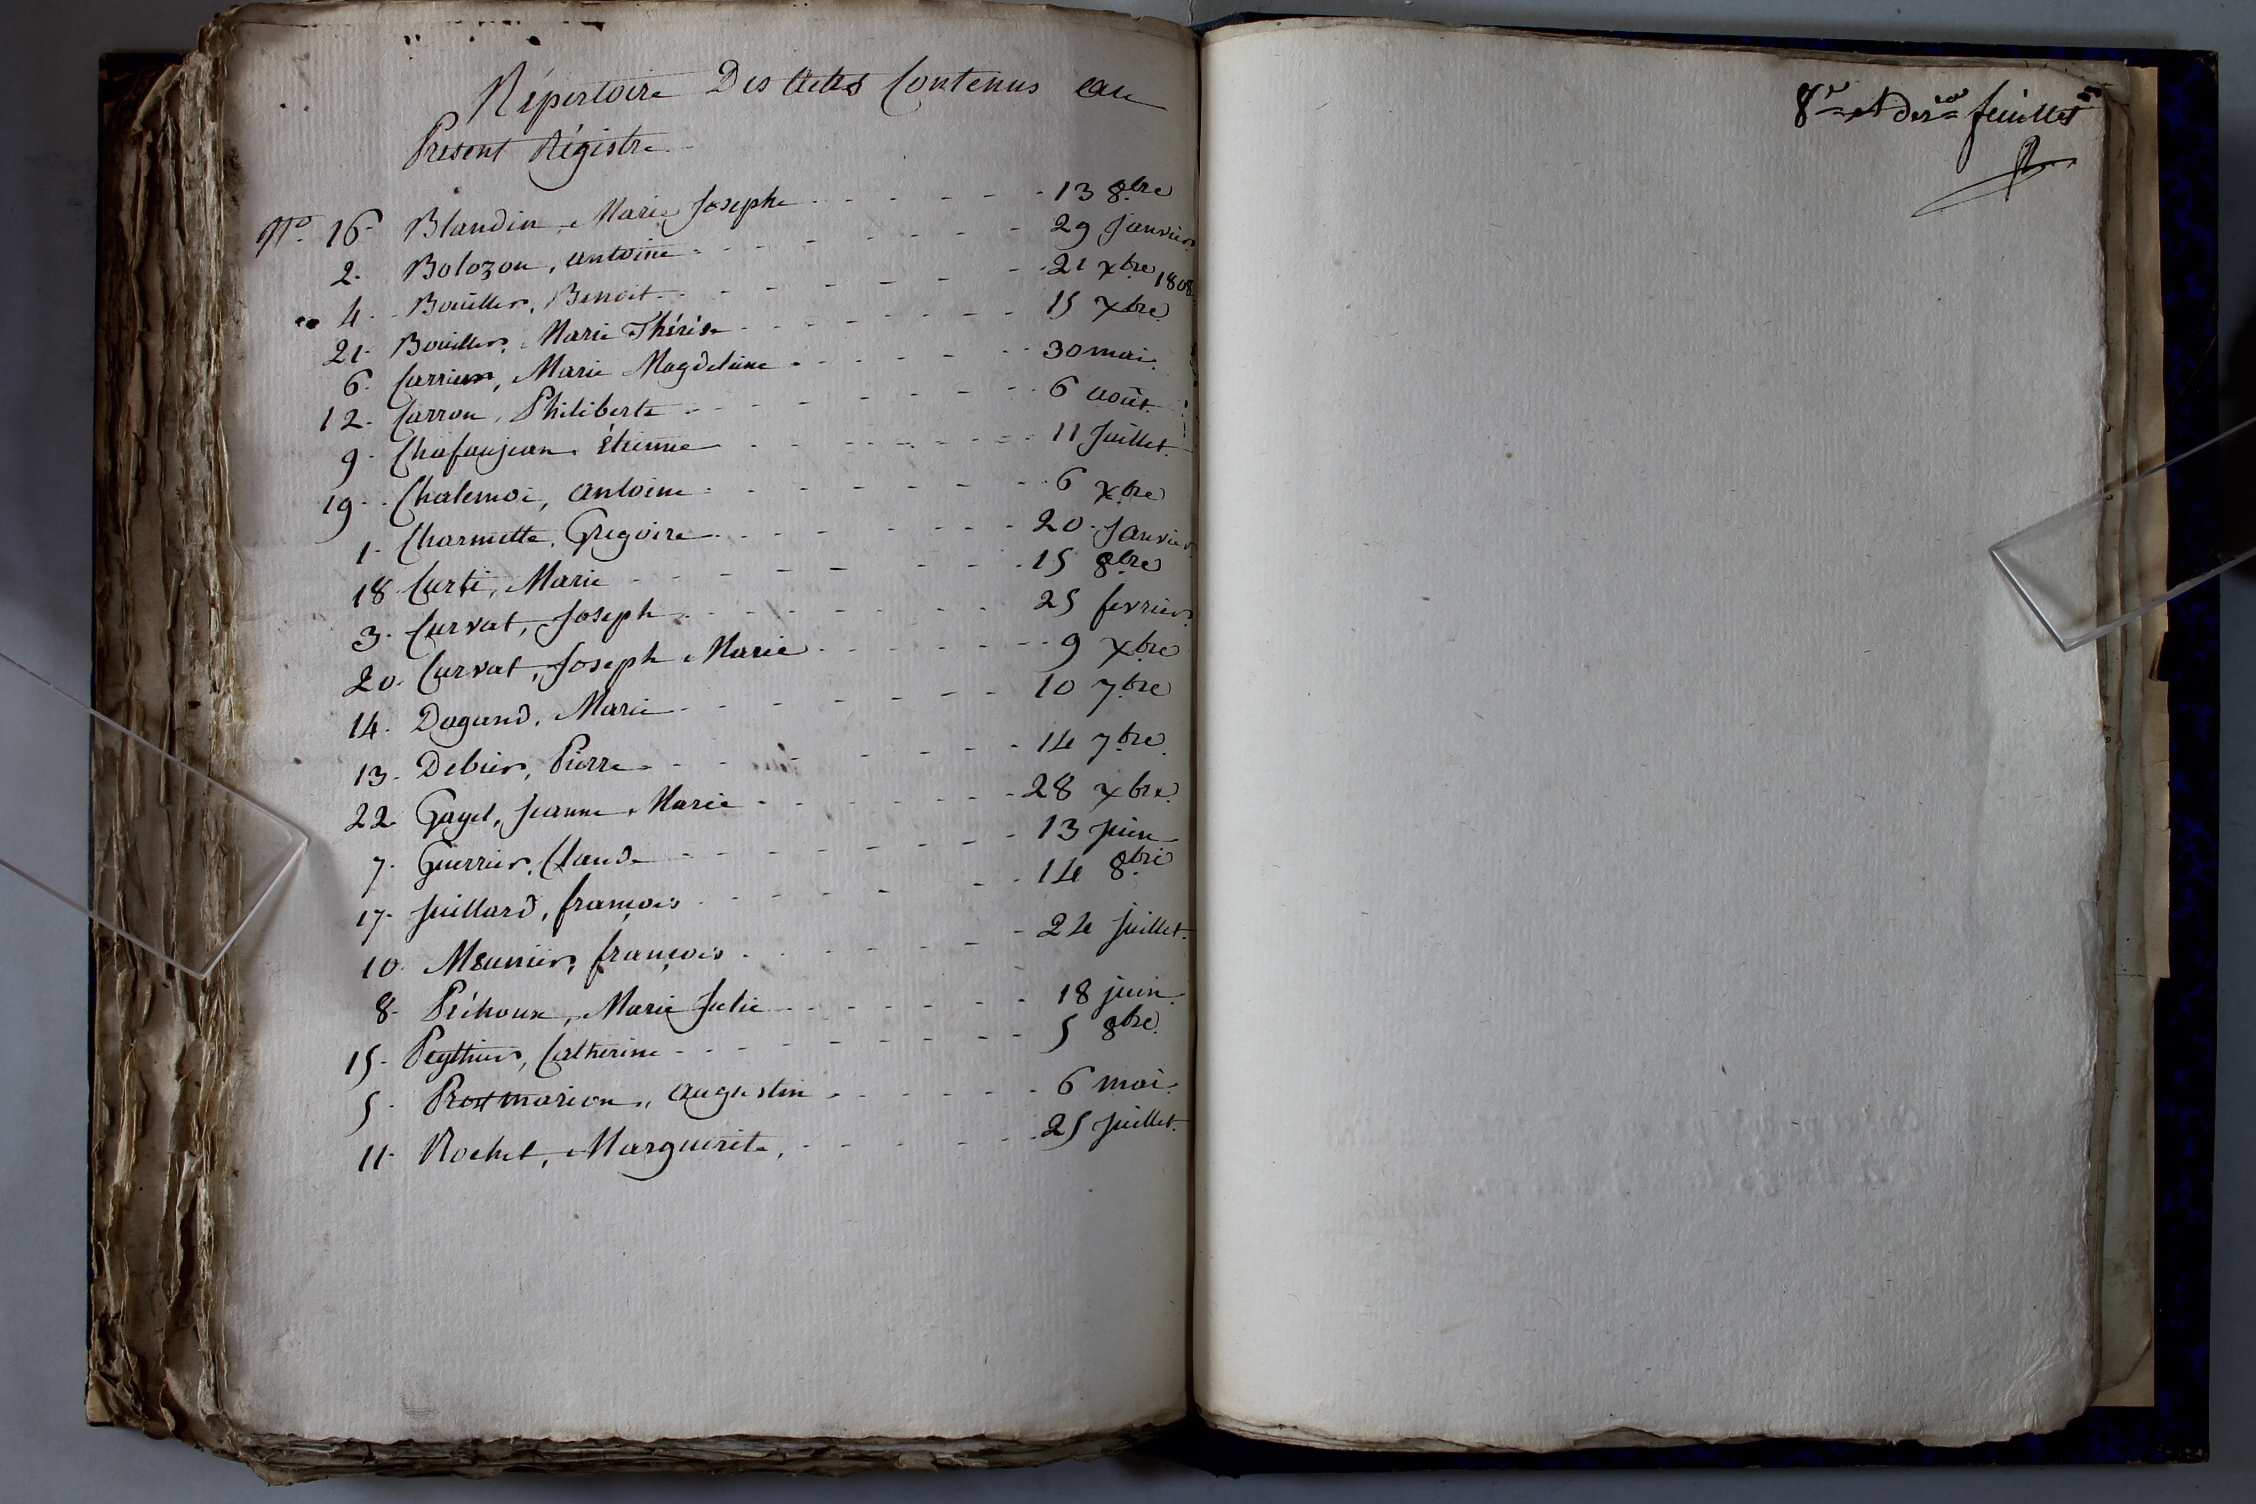 Répertoire Des Actes Contenus au
Présent Régistre
No. 16 Blandin, Marie Josephe - - - - - - 13 8bre
2. Bolozon, antoine - - - - - - - - 29 Janvier
4. Bouiller, Benoit - - - - - - - 21 xbre 1808
21. Bouiller, Marie Thérése - - - - - - - - 15 xbre
6. Carrier, Marie Magdeleine - - - - - - 30 mai
12. Carron, Philiberte - - - - - - - 6 août
9. Chafaujean, étienne - - - - - - - - 11 Juillet
19. Chalemoi, antoine - - - - - - - - 6 xbre
1. Charmette, Gregoire - - - - - - - 20 Janvier
18. Curti, Marie - - - - - - - - 15 8bre
3. Curvat, Joseph - - - - - - - - 25 fevrier
20. Curvat, Joseph Marie - - - - - - 9 xbre
14. Dagand, Marie - - - - - - - - 10 7bre
13. Debier, Pierre - - - - - - - 14 7bre
22. Gayet, Jeanne Marie - - - - - - - 28 xbre
7. Guerrier, Claude - - - - - - - - - 13 juin
17. Juillard, françois - - - - - - - 14 8bre
10. Meunier, françois - - - - - - - 24 juillet
8. Préhoux, Marie Julie - - - - - - 18 juin
15. Peythier, Catherine - - - - - - - - - 5 8bre
5. marion, augustin - - - - - - 6 mai
11. Rochet, Marguerite, - - - - - - 25 juillet
8e et derer feuillet